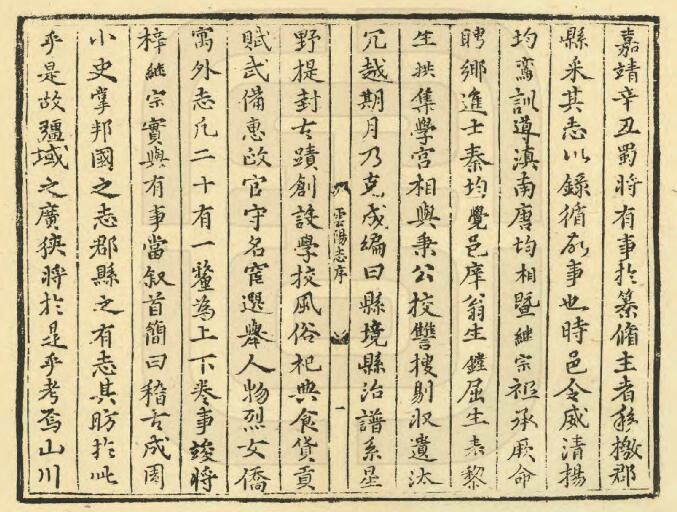 嘉靖辛丑蜀將有事於纂脩主者移檄郡
縣采其志以錄循故事也時邑令威清揚
均鸞訓導滇南唐均相暨継宗祗承厥命
聘鄉進士秦均覺邑庠翁生鏜屈生表黎
生拱集學宮相與秉公挍讐搜剔収遺汰
冗越期月乃克成編曰縣境縣治譜系星
雲陽志序
一
野提封古蹟創設學校風俗祀典食貨貢
賦武備惠政官守名宦選舉人物烈女僑
寓外志凡二十有一釐為上下卷事竣將
梓継宗實與有事當叙首簡曰稽古成周
小史掌邦國之志郡縣之有志其昉於此
乎是故疆域之廣狹將於是乎考焉山川